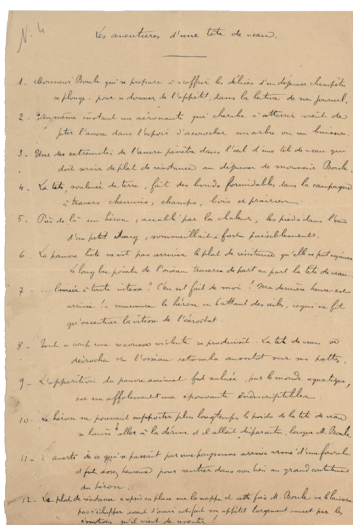 N. 4
Les aventures d'une tête de veau.
1. Monsieur Boule qui se prépare à s'offrir les délices d'un déjeuner champêtre
se plonge, pour se donner de l'appétit, dans la lecture de son journal.
2. Au même instant un aéronaute qui cherche à atterrir vient de
jeter l'ancre dans l'espoir d'accrocher un arbre ou un buisson.
3. Une des extrémités de l'ancre pénètre dans l'œil d'une tête de veau qui
doit servir de plat de résistance au déjeuner de monsieur Boule.
4. La tête, soulevée de terre, fait des bonds formidables dans la campagne
à travers chemins, champs, bois et prairies.
5. Près de là un héron, accablé par la chaleur, les pieds dans l'eau
d'un petit étang, sommeillait fort paisiblement.
6. La pauvre bête ne vit pas arriver le plat de résistance
Le long bec pointu de l'oiseau traversa de part en part la tête de veau.
7. C'en est fait de moi ! Ma dernière heure est
arrivée ! murmura le héron en battant des ailes, ce qui ne fit
qu'accentuer la vitesse de l'aérostat.
8. Tout à coup une secousse violente se produisit. La tête de veau se
décrocha et l'oiseau retomba aussitôt sur ses pattes.
9. L'apparition du pauvre animal fut saluée, par le monde aquatique,
par un affolement et une épouvante indescriptibles.
10. Le héron ne pouvant supporter plus longtemps le poids de la tête de veau
se laissa aller à la dérive et il allait disparaître, lorsque M. Boule,
11. averti de ce qui se passait par une paysanne arriva armé d'une fourche
et fut assez heureux pour rentrer dans son bien au grand contentement
du héron.
12. Le plat de résistance
émotions qu'il vient de ressentir !